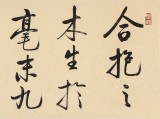 合抱之
木生於
毫末九